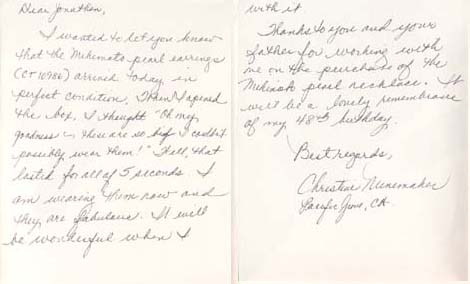 Dear Jonathan,
I wanted to let you know
that the Mikimoto pearl earrings
(CT10986) arrived today in
perfect condition. When I opened
the box, I thought "Oh my
goodness these are so big I couldn't
possibly wear them!" Well, that
lasted for all of 5 seconds. I
am wearing them now and
they are fabulous. It will
be wonderful when I
with it
Thanks to you and your
father for working with
me on the purchase of the
Mikimoto pearl necklace. It
will be a lovely remembrance
of my 48th birthday.
Best regards,
Christine Nunemaker
Pacific Grove, CA